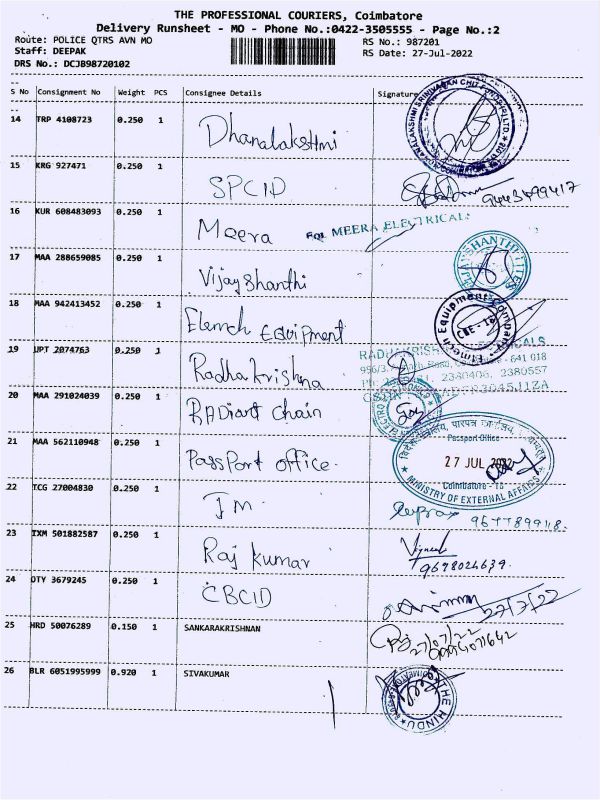 THE PROFESSIONAL COURIERS, Coimbatore
Delivery Runsheet - MO - Phone No.:0422-3505555 - Page No.:2
Route: POLICE QTRS AVN MO
RS No.: 987201
Staff: DEEPAK
RS Date: 27-Jul-2022
DRS No.: DCJB98720102
S No Consignment No Weight PCS Consignee Details Signature
14 TRP 4108723 0.250 1 Dhanalakshmi
15 KRG 927471 0.250 1 SPCID
16 KUR 608483093 0.250 1 Meera For MEERA ELECTRICALS
17 MAA 288659085 0.250 1 Vijayshanthi
18 MAA 942413452 0.250 1 Elemch EQUIPMENT
Equipment Company - Elmech
CBE - 18
19 UPT 2074763 0.250 1 Radha krishna
641 018
2380406, 2380557
20 MAA 291024039 0.250 1 RADiant chain
21 MAA 562110948 0.250 1 PassPort office.
Passport Office
27 JUL 2022
Coimbatore - 18
MINISTRY OF EXTERNAL AFFAIRS
22 TCG 27004830 0.250 1 IM
23 IXM 501882587 0.250 1 Raj kumar
9678024639.
24 OTY 3679245 0.250 1 CBCID
27/7/22
25 HRD 50076289 0.150 1 SANKARAKRISHNAN
27/07/22
26 BLR 6051995999 0.920 1 SIVAKUMAR
THE HINDU